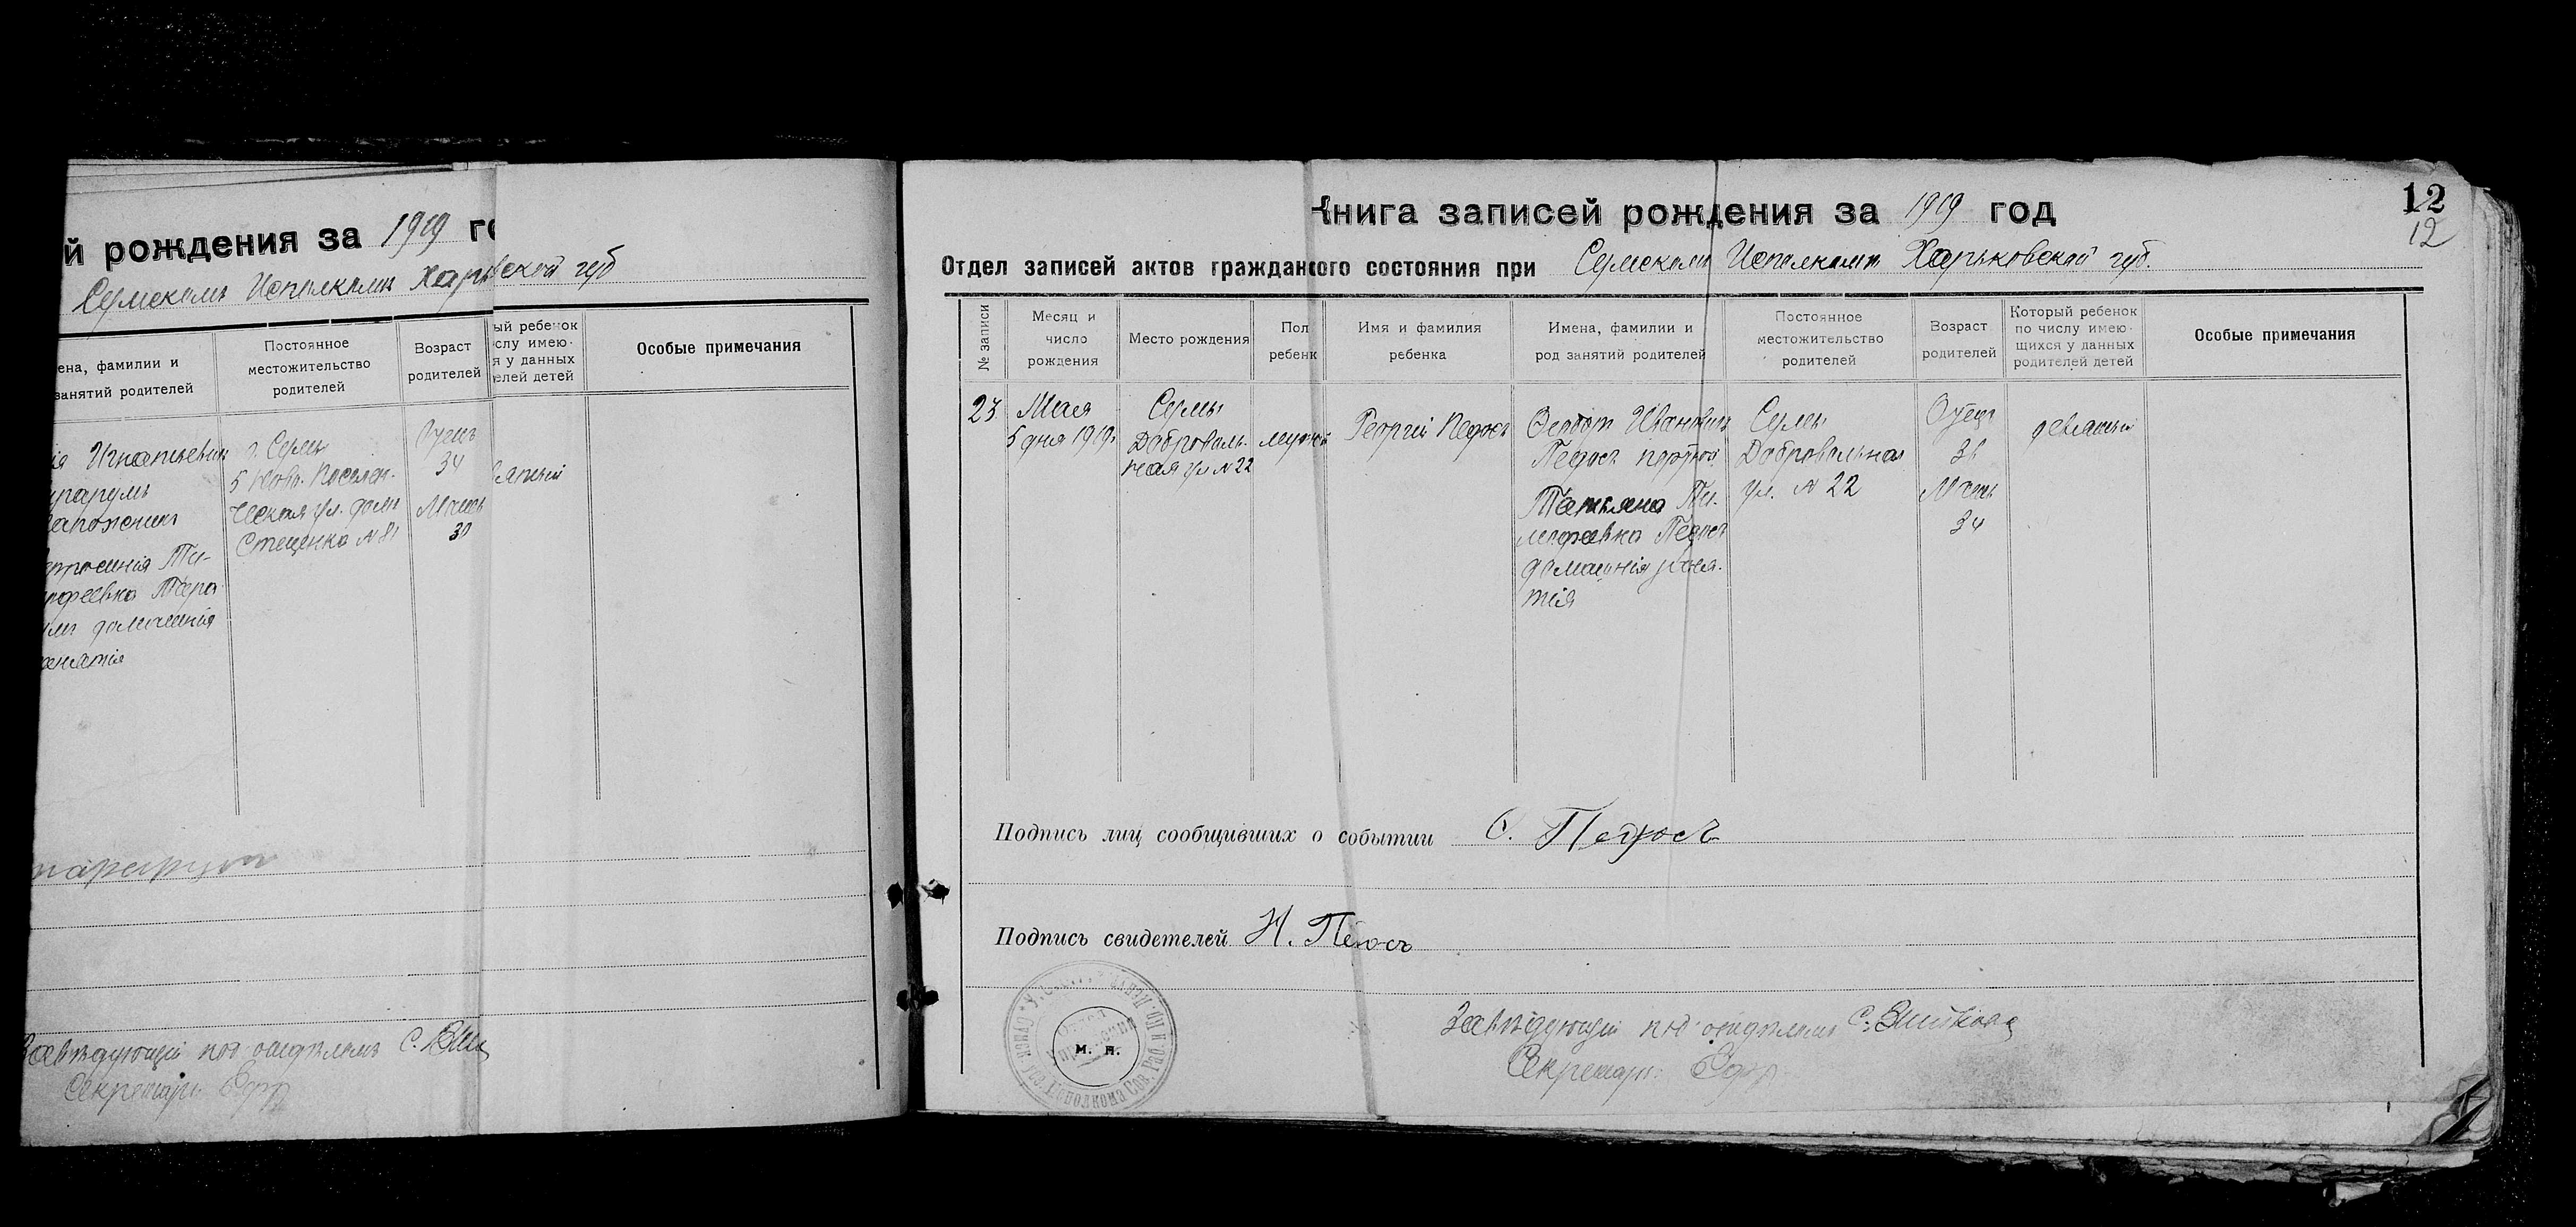 й рождения за 1919 го
Сумскомъ Исполкомъ Харьковской губ
ена, фамилии и
занятий родителей
Постоянное
местожительство
родителей
Возраст
родителей
ый ребенок
слу имею-
я у данных
елей детей
Особые примечания
ія Игнатьевич
г. Сумы
5 Ново. Поселен.
ческая ул. домъ
Стеценко № 81
Отецъ
34
Мать
30
Ти-
офеевна
домашнія
анятія
Завѣдующій под отдѣломъ С.
Секретарь
12
12
Книга записей рождения за 1919 год
Отдел записей актов гражданского состояния при Сумскомъ Исполкомѣ Харьковской губ.
№ записи
Месяц и
число
рождения
Место рождения
Пол
ребенк
Имя и фамилия
ребенка
Имена, фамилии и
род занятий родителей
Постоянное
местожительство
родителей
Возраст
родителей
Который ребенок
по числу имею-
щихся у данных
родителей детей
Особые примечания
23
Мая
5 дня 1919г
Сумы
Доброволь.
ная ул № 22
мужской
Георгій Педосъ
Иванович
Педосъ портной
Татьяна Ти-
мофеевна Педосъ
домашнія заня-
тія
Сумы
Добровольная
ул. № 22
Отецъ
36
Мать
34
девятый
Подпись лиц сообщивших о событии С. Педосъ
Подпись свидетелей Н. Педосъ
м. п.
Завѣдующій под отдѣломъ С.
Секретарь